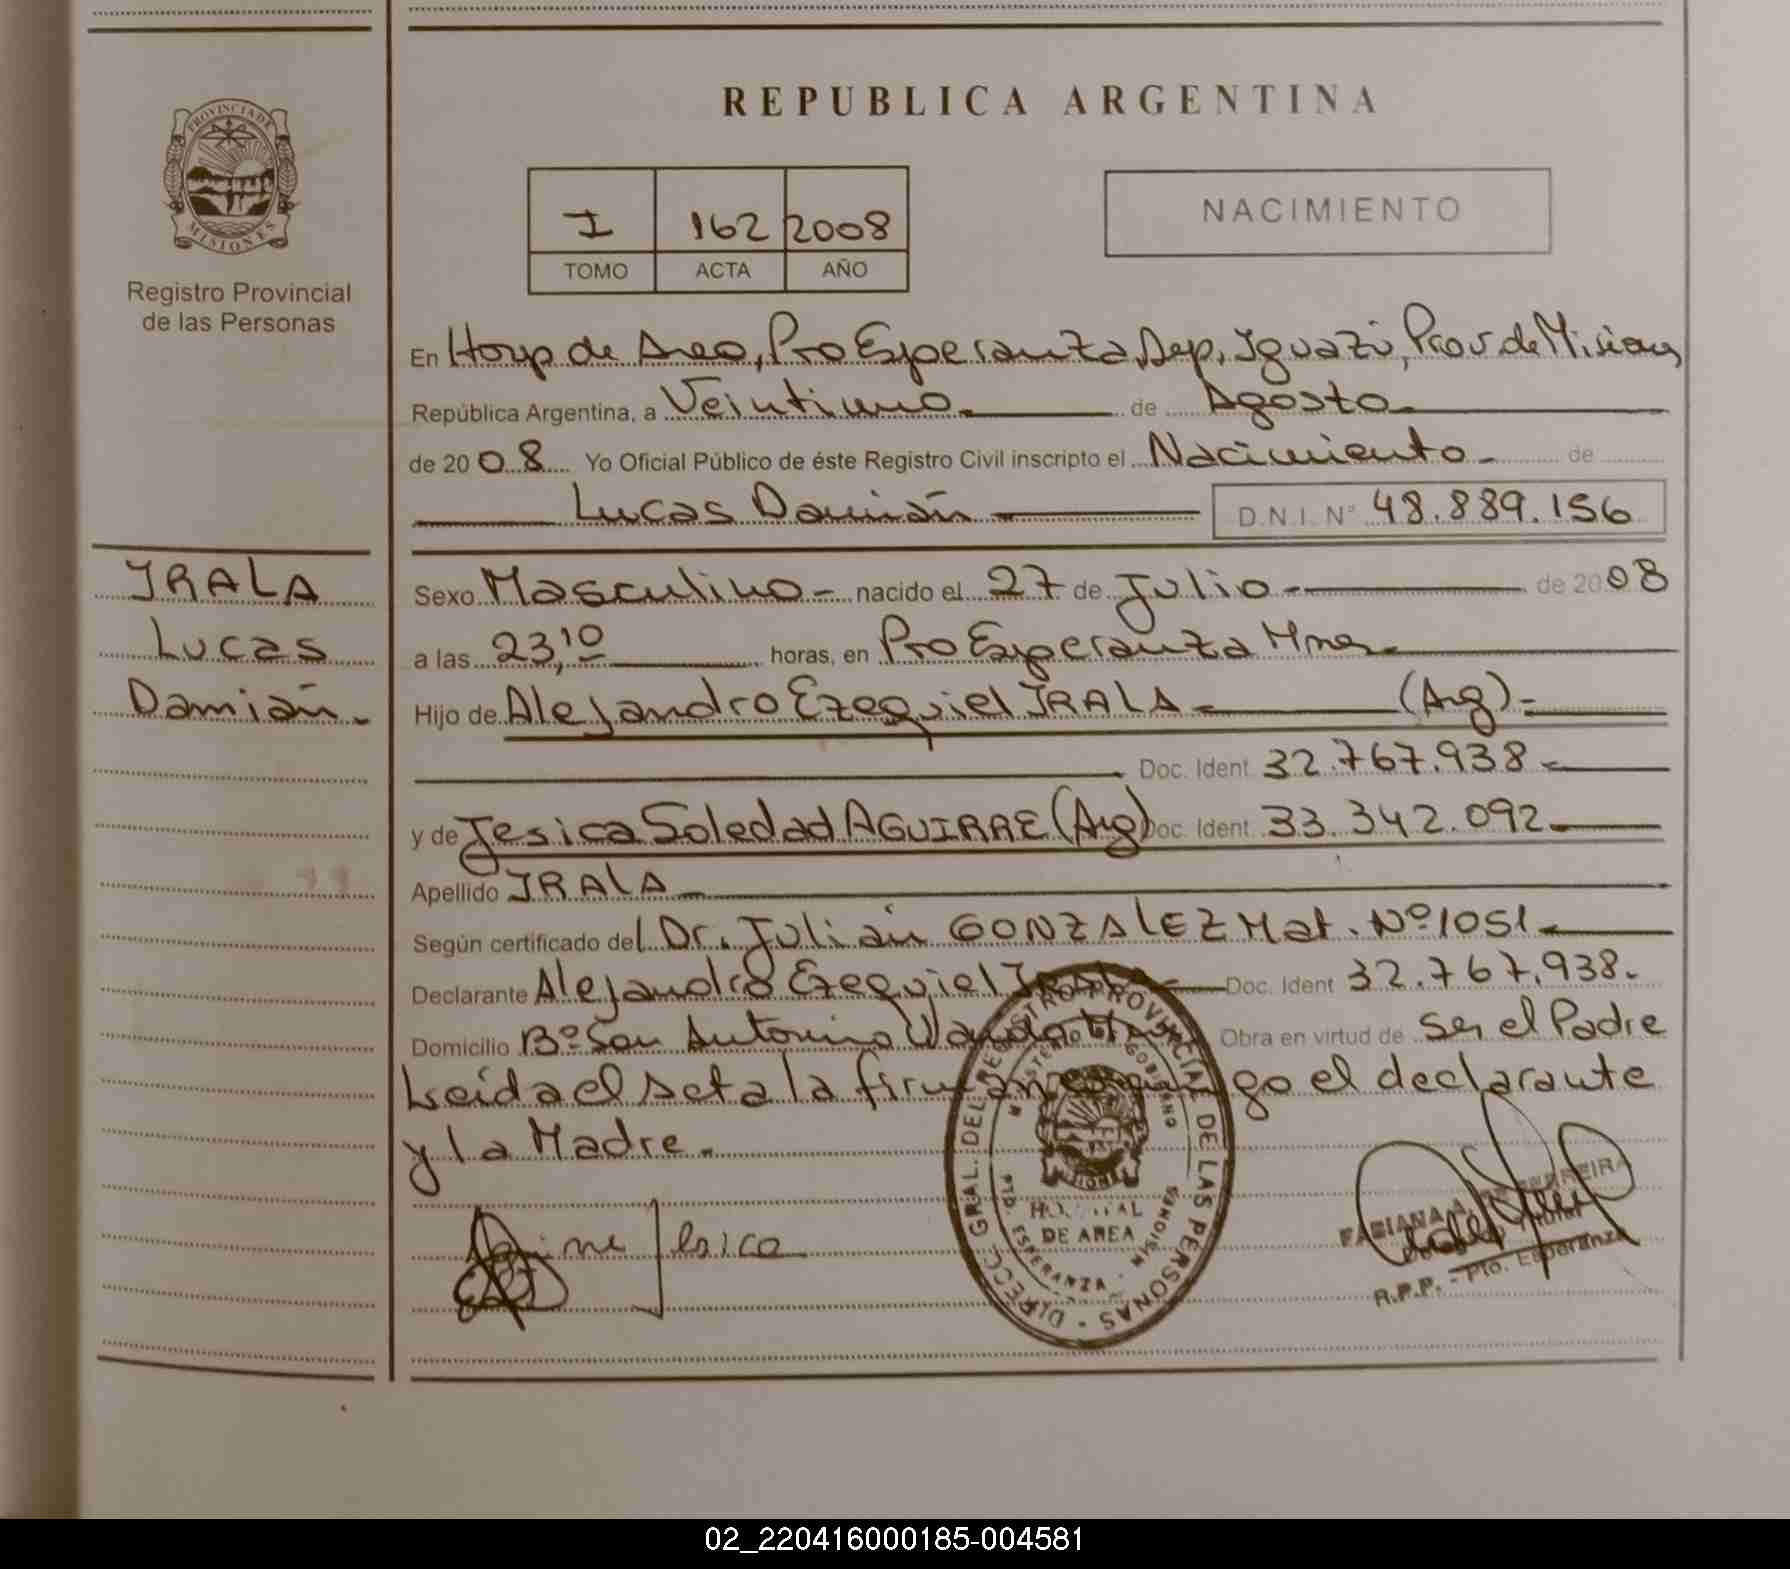 REPUBLICA ARGENTINA
PROVINCIA DE MISIONES
Registro Provincial
de las Personas
I 162 2008
TOMO ACTA AÑO
NACIMIENTO
En Hosp de Area, Pto Esperanza, Dep. Iguazú, Prov. de Misiones,
República Argentina, a Veintiuno de Agosto
de 2008 Yo Oficial Público de éste Registro Civil inscripto el Nacimiento de
Lucas Damián D.N.I. N° 48.889.156
IRALA
Lucas
Damián.
Sexo Masculino nacido el 27 de Julio de 2008
a las 23,10 horas, en Pto Esperanza Mnes
Hijo de Alejandro Ezequiel IRALA (Arg)
Doc. Ident 32.767.938
y de Jesica Soledad AGUIRRE (Arg) Doc. Ident 33.342.092
Apellido IRALA
Según certificado del Dr. Julián GONZALEZ Mat. Nº 1051
Declarante Alejandro Ezequiel IRALA Doc. Ident 32.767.938.
Domicilio Bº San Antonino Wanda Obra en virtud de Ser el Padre
Leída el Acta la firman conmigo el declarante
y la Madre.
Jesica
DIRECC. GRAL. DEL REGISTRO PROVINCIAL DE LAS PERSONAS
MINISTERIO DE GOBIERNO
HOSPITAL
DE AREA
PTO. ESPERANZA - MISIONES
FABIANA A. FERREIRA
R.P.P. - Pto. Esperanza
02_220416000185-004581